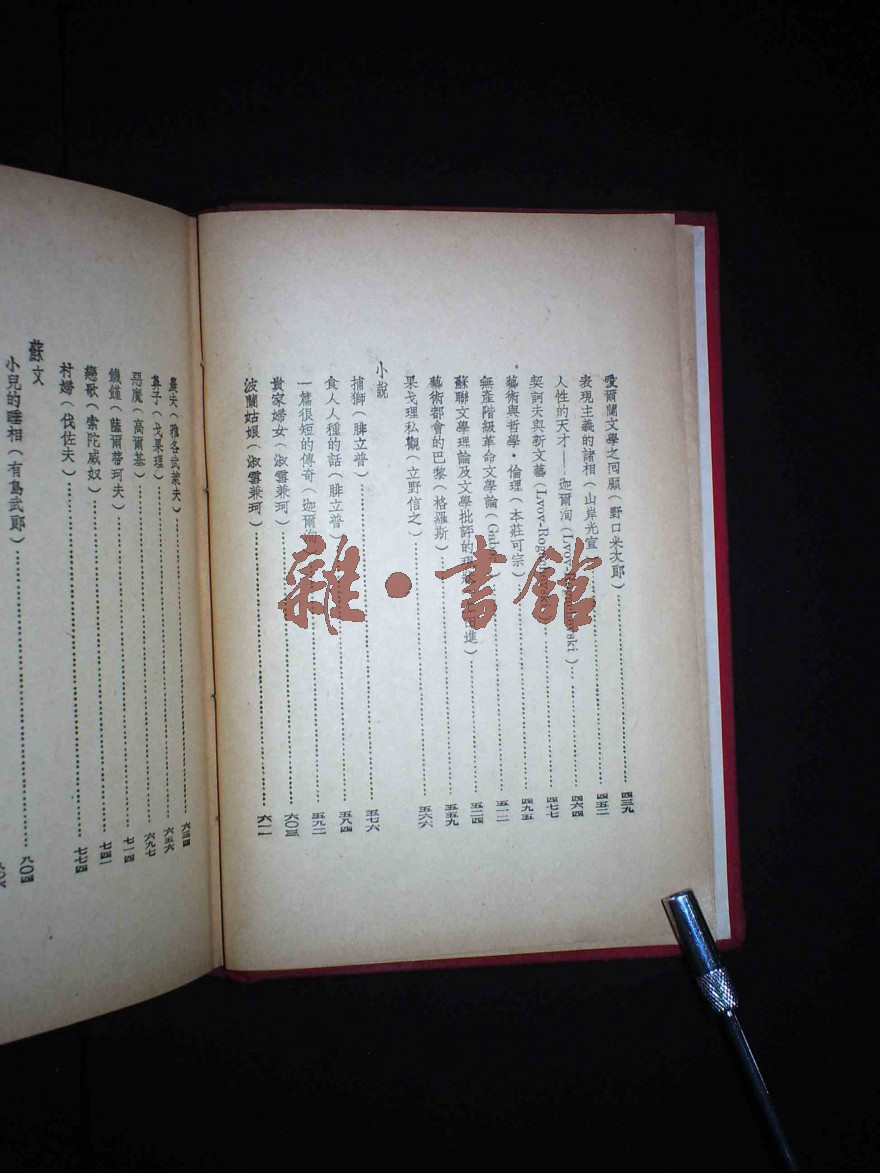 愛爾蘭文學之回顧(野口米次郎)…………四三九
表現主義的諸相(山岸光宣)…………四五二
人性的天才——迦爾洵(Lvov-Rogachevski)…………四六四
契訶夫與新文藝(Lvov-Rog…………四七七
藝術與哲學・倫理(本莊可宗)…………四九五
無產階級革命文學論(…………五一二
蘇聯文學理論及文學批評的現…進)…………五二四
藝術都會的巴黎(格羅斯)…………五五九
果戈理私觀(立野信之)…………五六六
小說
捕獅(腓立普)…………五七六
食人人種的話(腓立普)…………五八四
一篇很短的傳奇(迦爾洵)…………五九二
貴家婦女(淑雪兼珂)…………六〇三
波蘭姑娘(淑雪兼珂)…………六一一
農夫(雅各武萊夫)…………六三四
鼻子(戈果理)…………六五六
惡魔(高爾基)…………六九七
饑饉(薩爾蒂珂夫)…………七一四
戀歌(索陀威奴)…………七四一
村婦(伐佐夫)…………七七四
蘇文
小兒的睡相(有島武郎)…………八〇四
雜・書館